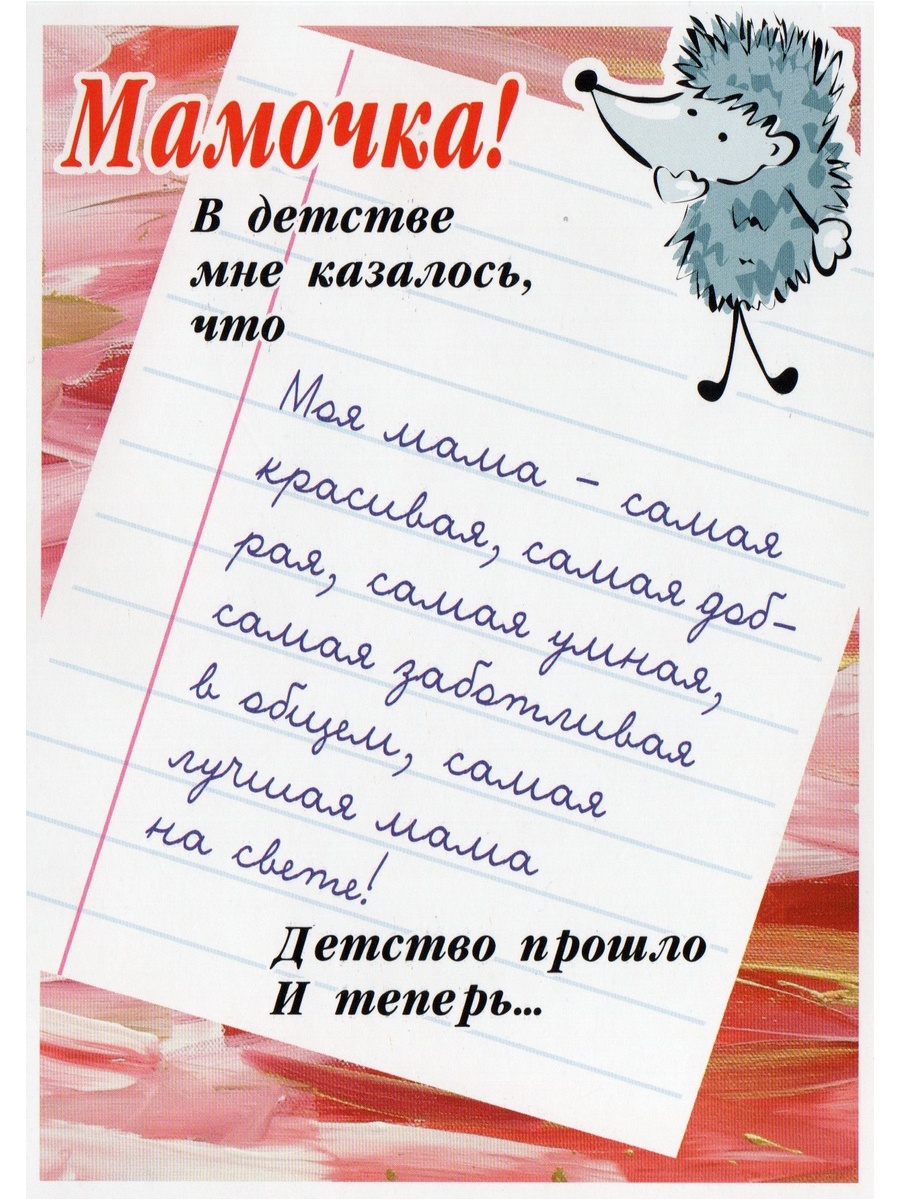 Мамочка!
В детстве
мне казалось,
что
Моя мама - самая
красивая, самая доб-
рая, самая умная,
самая заботливая
в общем, самая
лучшая мама
на свете!
Детство прошло
И теперь...